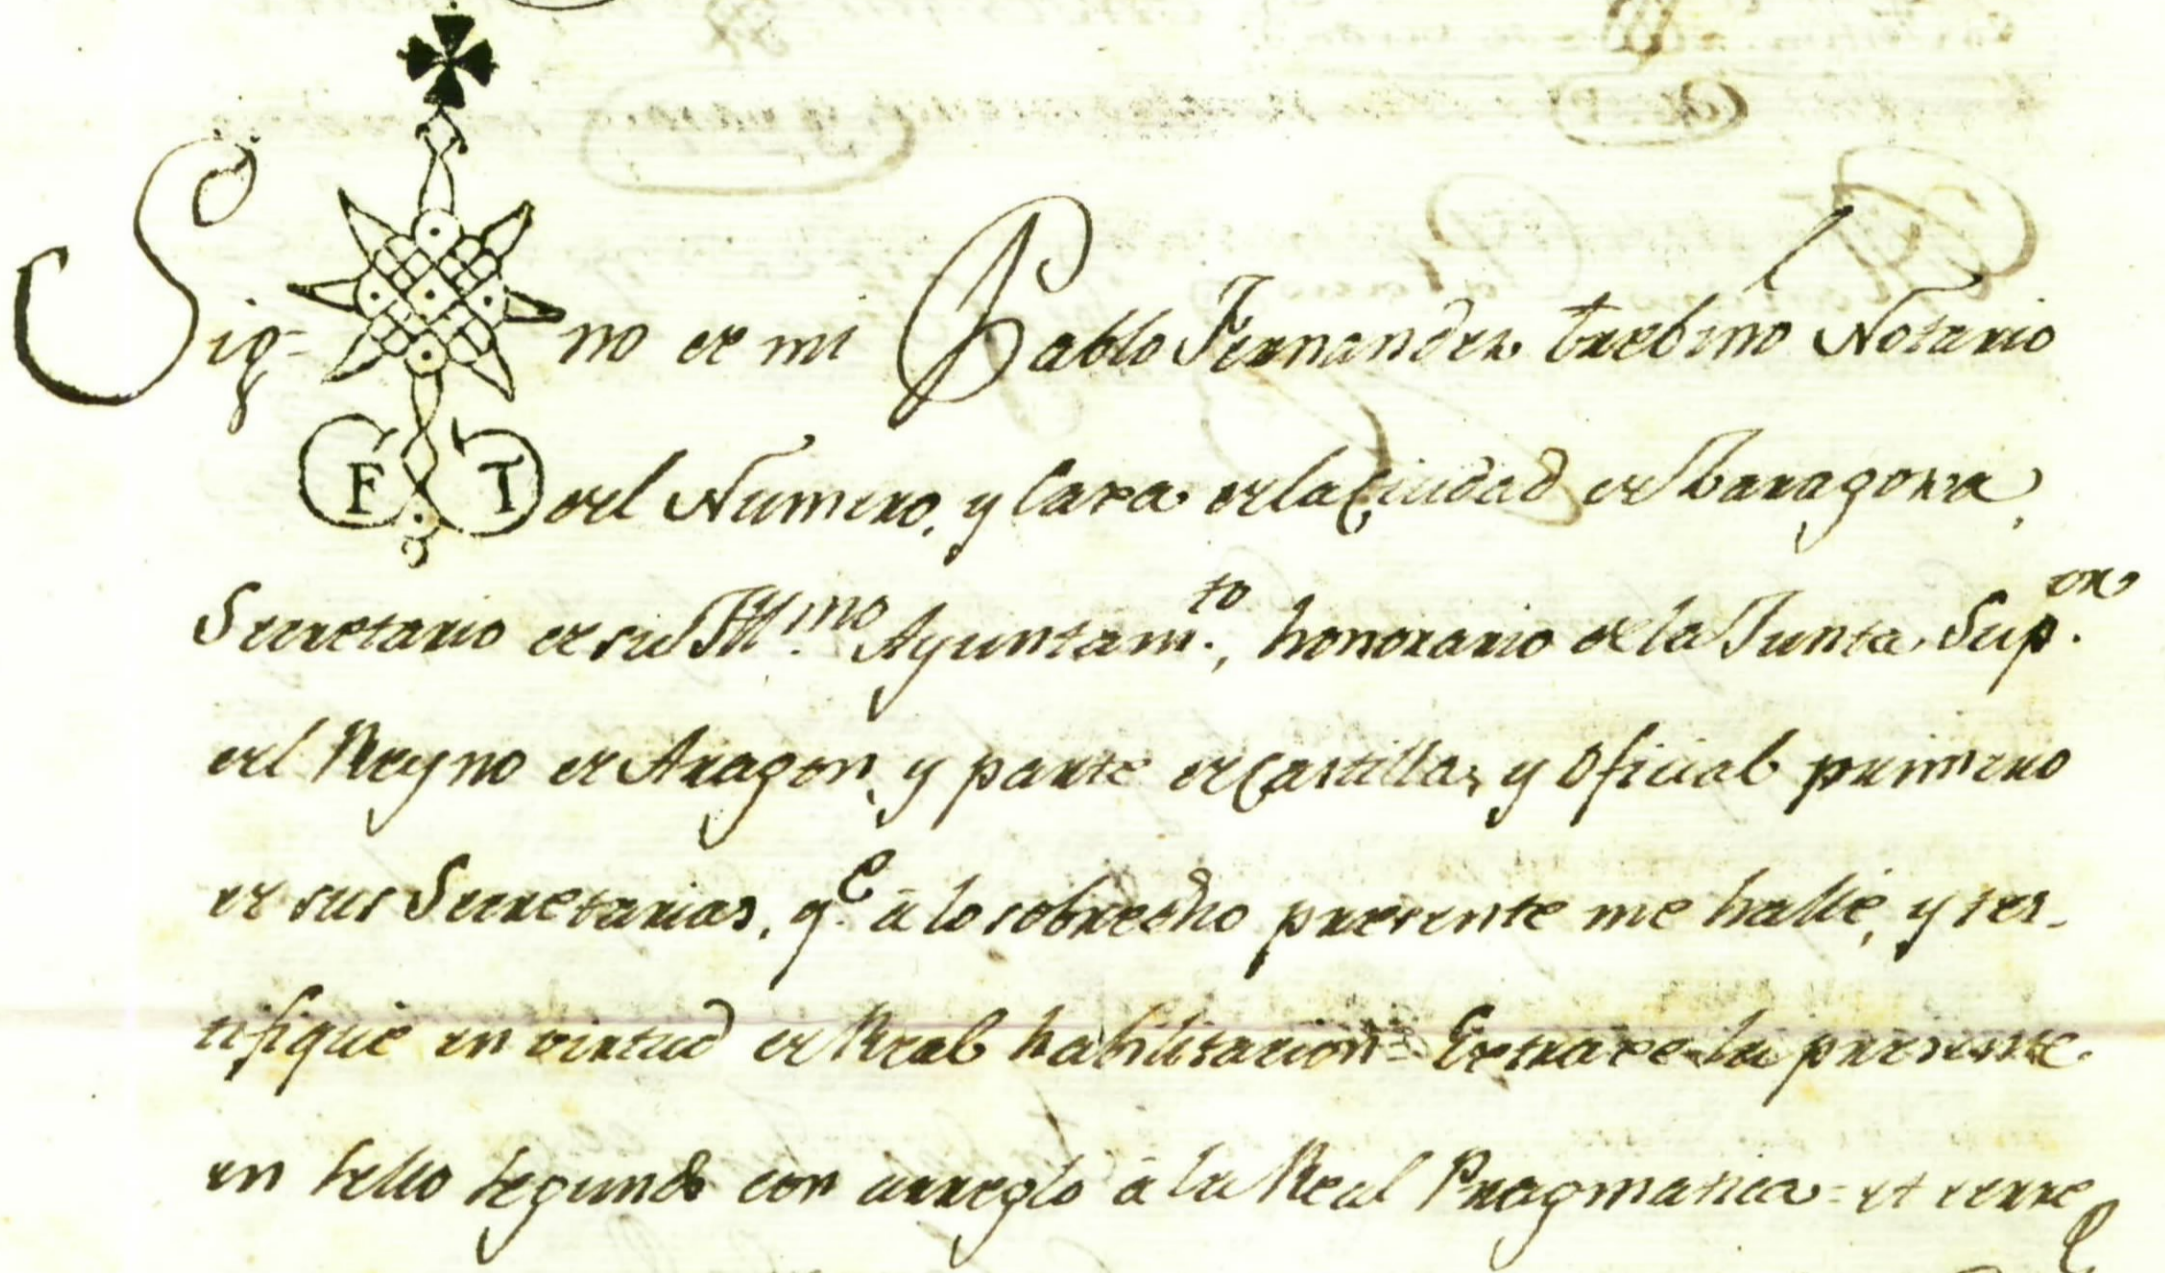 Sig= no de mi Pablo Fernandez Trebino Notario
F T del Numero, y Caxa de la Ciudad de Zaragoza,
Secretario de su Ill.mo Ayuntam.to, honorario de la Junta Sup.or
del Reyno de Aragon, y parte de Castilla, y Oficial primero
de sus Secretarias, q.e à lo sobredho presente me hallé, y tes-
tifiqué en virtud de Real habilitacion= Extraxe la presente
en sello segundo con arreglo à la Real Pragmatica= et cerre